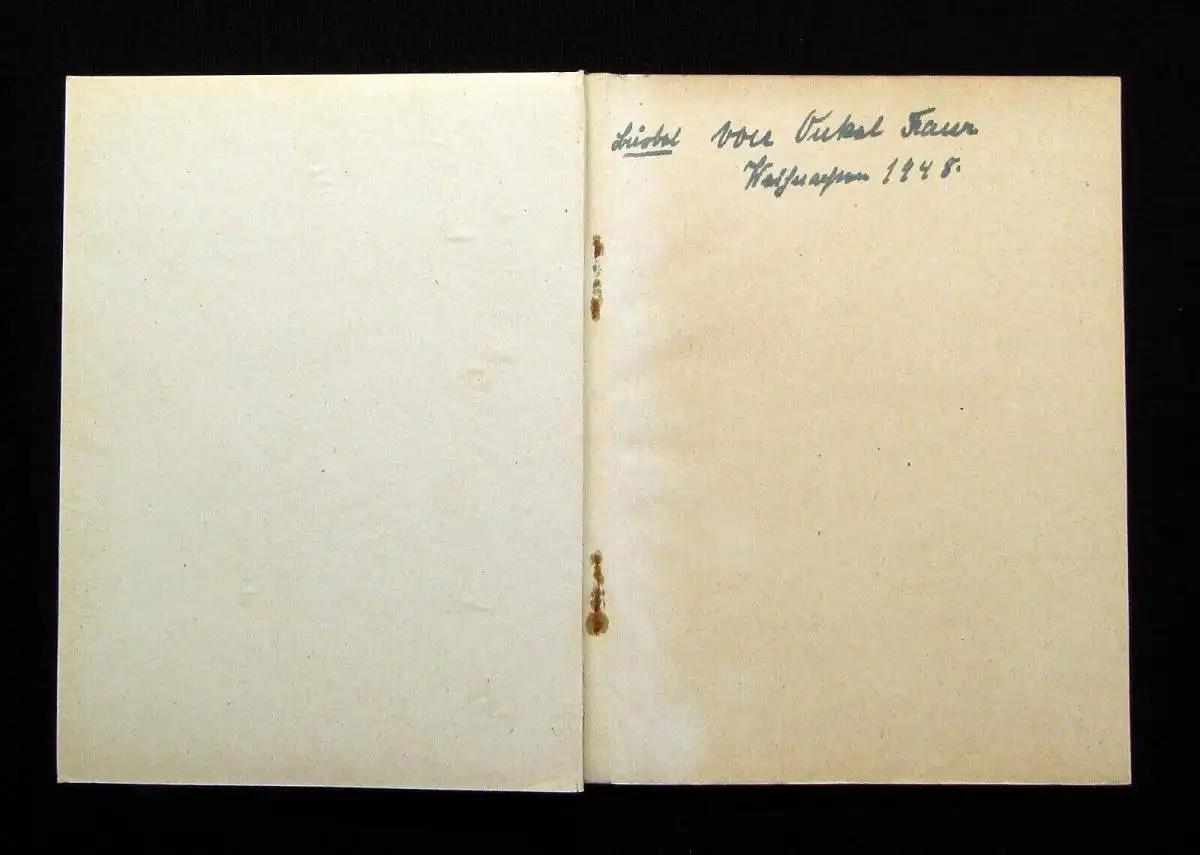 Bärbel von Onkel Franz
Weihnachten 1948.